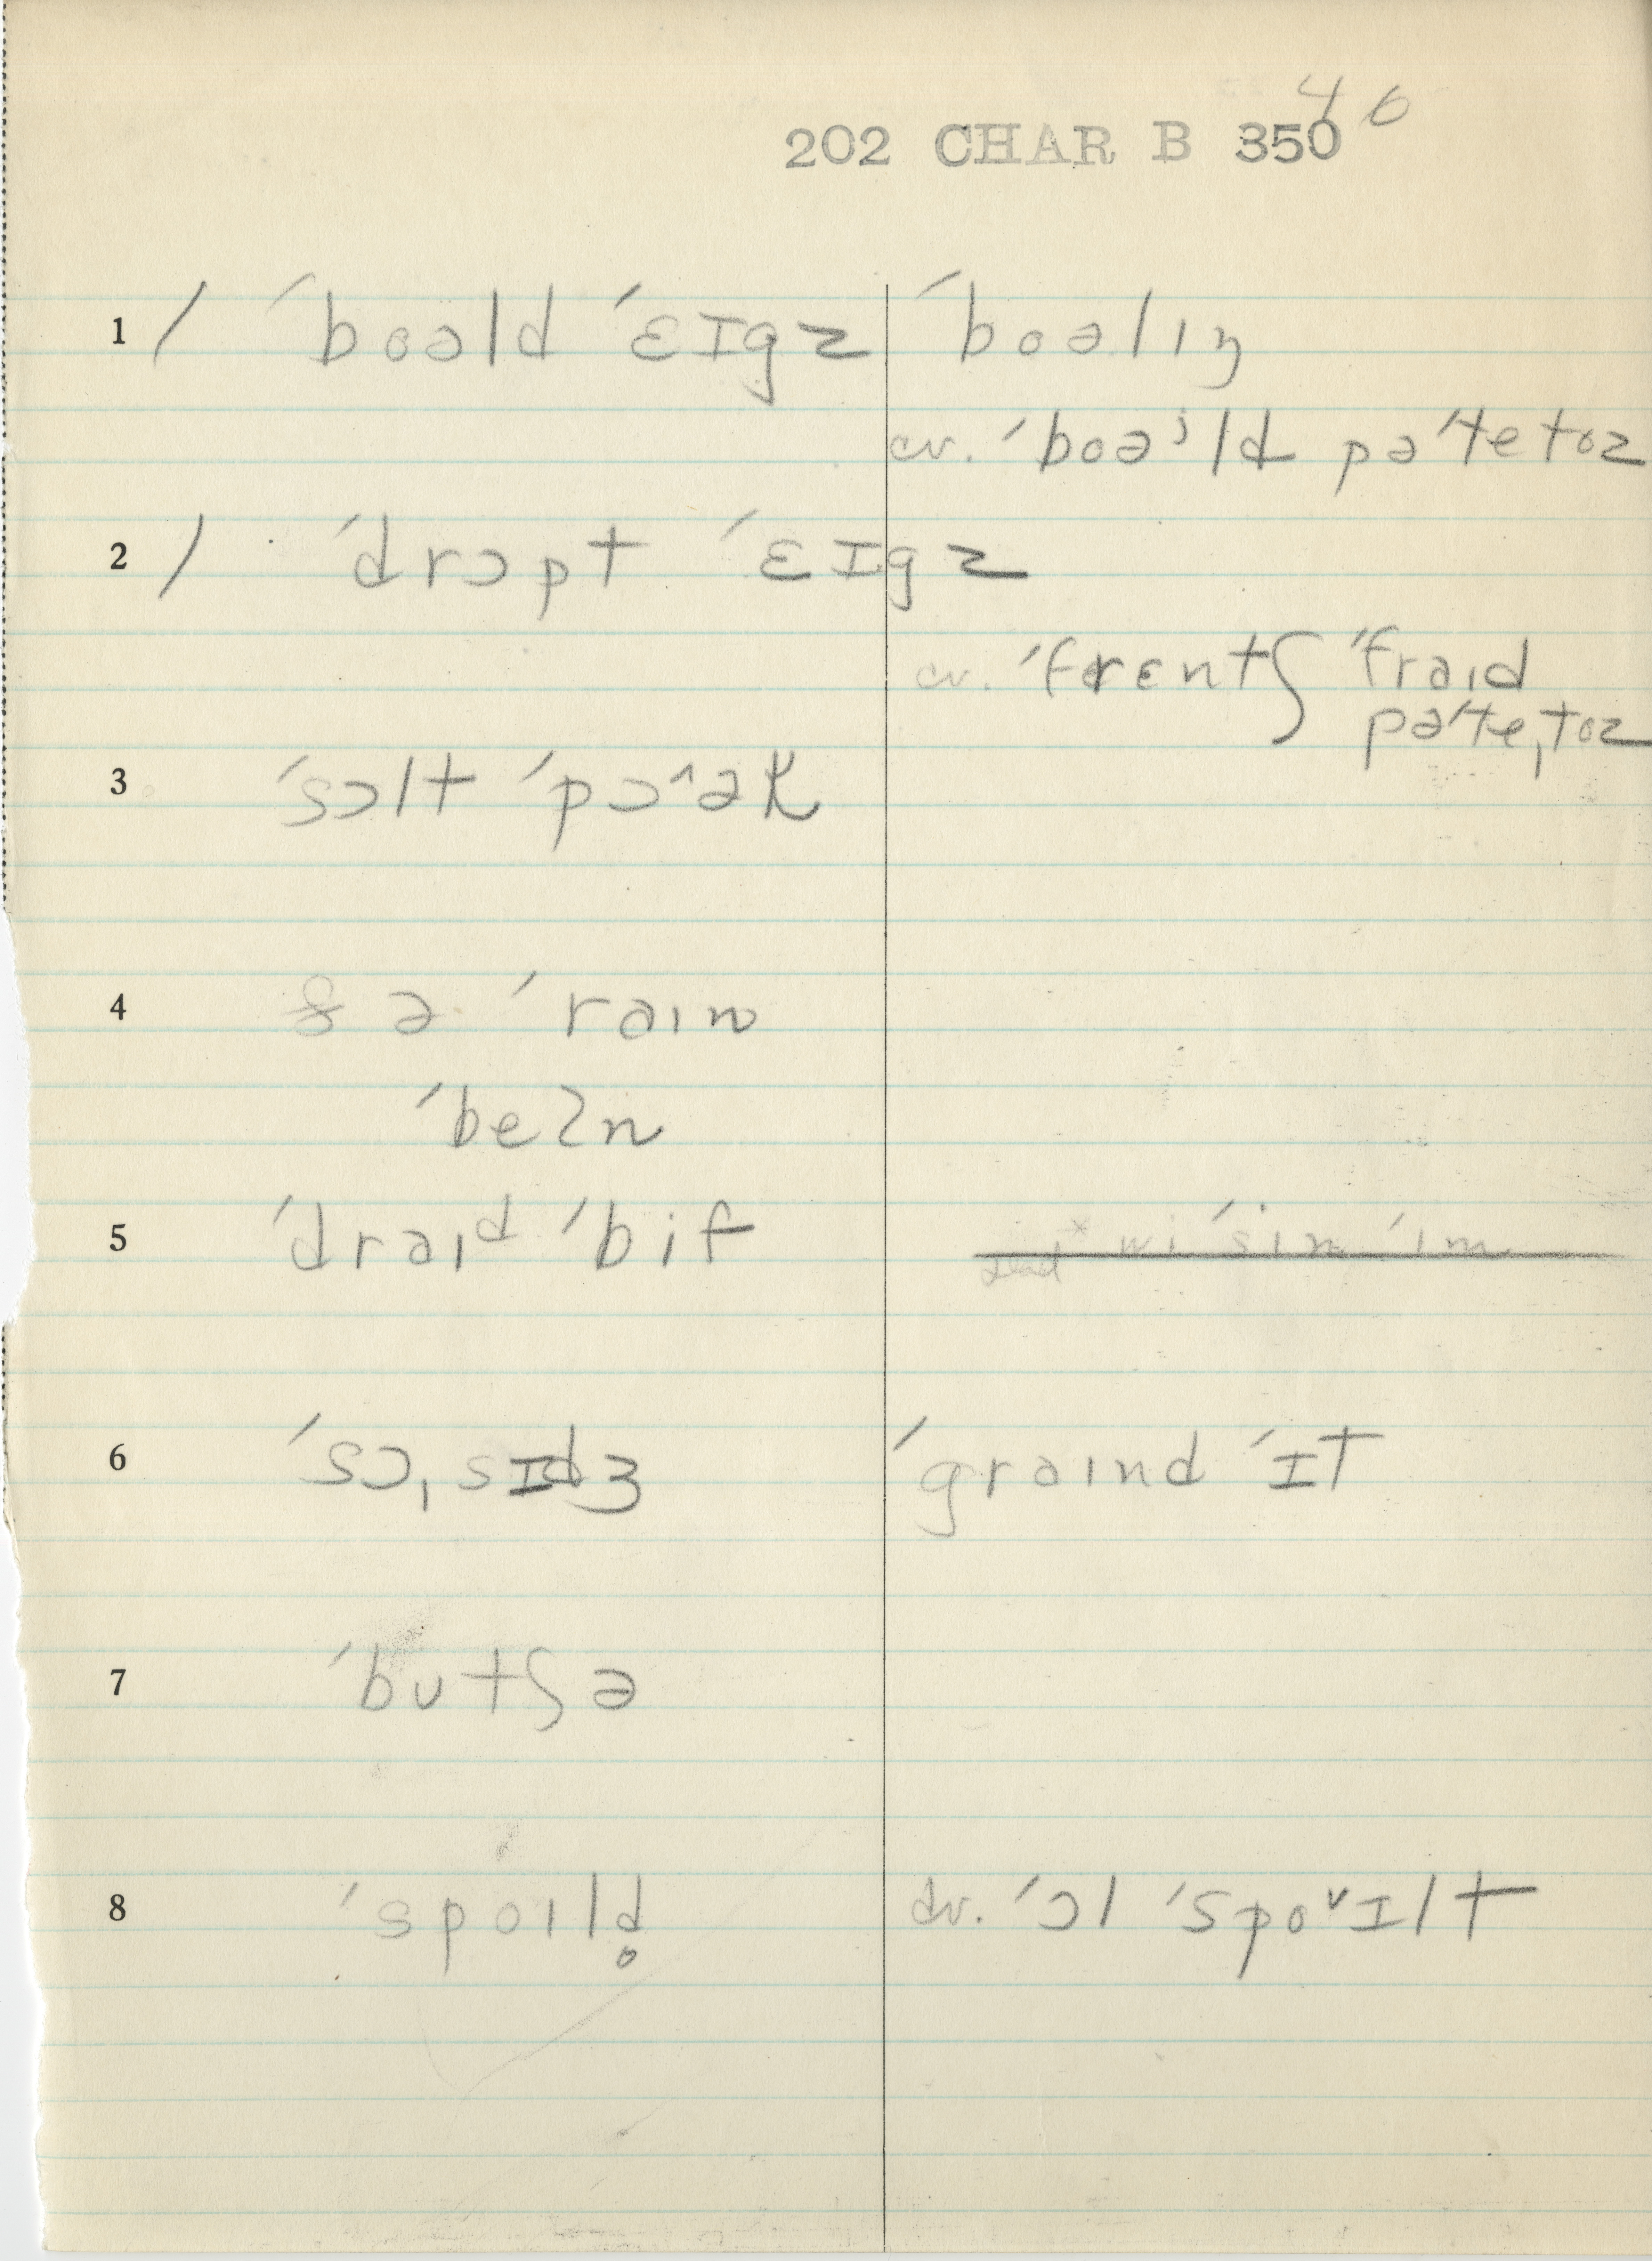 46
202 CHAR B 350
1 / ˈboəld ˈɛɪgz ˈboəlɪŋ
cv. ˈboəʲld pəˈtetoz
2 / ˈdrɔpt ˈɛɪgz
cv. ˈfrɛntʃ ˈfraɪd
pəˈteˌtoz
3 ˈsɔlt ˈpɔ^ək
4 & ə ˈraɪn
ˈbeʔn
5 ˈdraɪd ˈbif wi ˈsin ˈɪm
6 ˈsɔˌsɪdʒ ˈgraɪnd ˈɪt
7 ˈbutʃə
8 ˈspoɪld̥ cv. ˈɔl ˈspoᵛɪlt